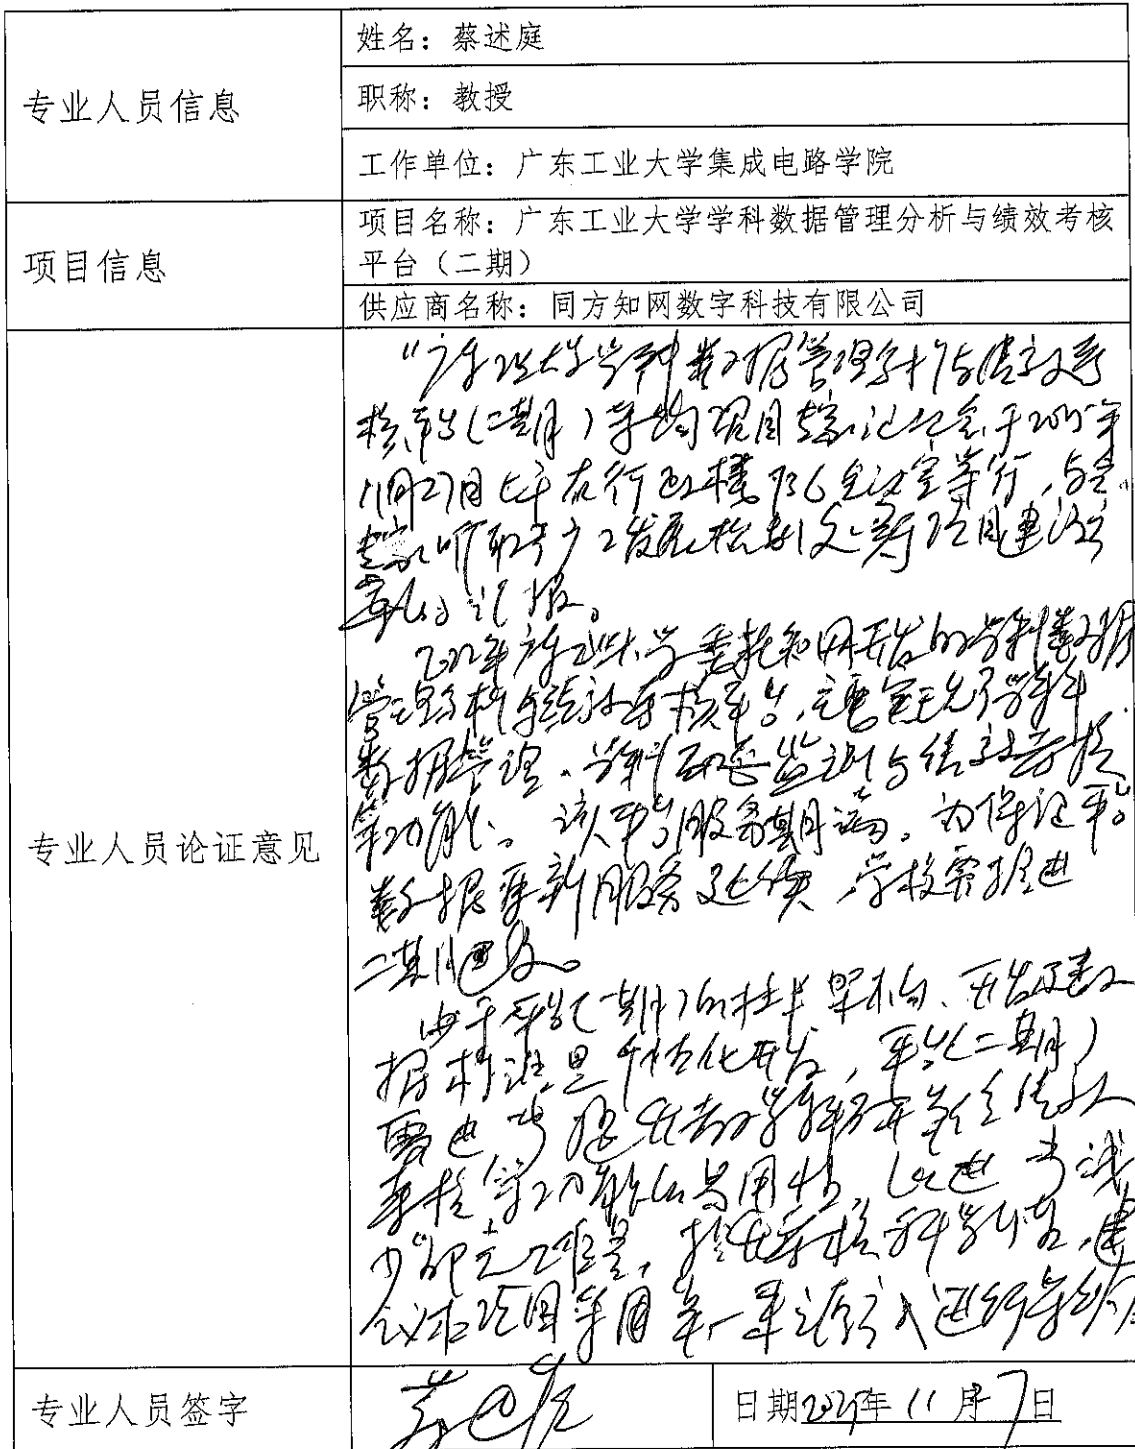 专业人员信息
姓名：蔡述庭
职称：教授
工作单位：广东工业大学集成电路学院
项目信息
项目名称：广东工业大学学科数据管理分析与绩效考核
平台（二期）
供应商名称：同方知网数字科技有限公司
专业人员论证意见
"广东工业大学学科数据管理分析与绩效考
核平台（二期）采购项目专家论证会于2025年
11月7日上午在行政楼736会议室举行，与会
专家听取了广工发展规划处对项目建设方
案的汇报。
2022年广东工业大学委托知网开发的学科数据
管理分析与绩效考核平台，主要实现了学科
数据管理、学科动态监测与绩效考核
等功能。该平台服务期满。为保证平台
数据更新服务延续，学校需推进
二期建设。
由于平台（一期）的技术架构、开发及数
据标准是个性化开发，平台（二期）
需进一步
考核等功能的易用性，以进一步减
少 工作量，提升考核科学性，建
议本项目采用单一来源方式进行采购。
专业人员签字
蔡述庭
日期2025年11月7日